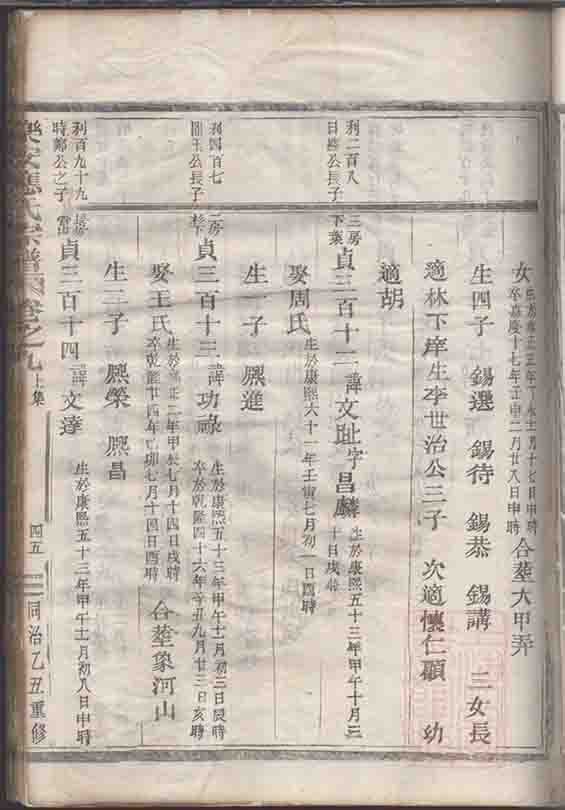 女 生於雍正五年丁未十二月十七日申時
卒嘉慶十七年壬申二月廿八日申時 合塟大甲弄
生四子 錫選 錫待 錫恭 錫講 二女長
適林下庠生李世治公三子 次適懷仁顧 幼
適胡
利二百八
公長子
三房
下葉
貞三百十二 諱文趾字昌麟 生於康熙五十三年甲午十月三
十日戌時
娶周氏 生於康熙六十一年壬寅七月初一日酉時
生一子 熈進
利四百七
公長子
二房
貞三百十三 諱功祿 生於康熙五十三年甲午十一月初三日辰時
卒於乾隆四十六年辛丑九月廿三日亥時
娶王氏 生於雍正二年甲辰七月十四日戌時
卒乾隆廿四年己卯七月十四日酉時 合塟象河山
生二子 熈榮 熈昌
利百九十九
時鄰公之子
貞三百十四 諱文達 生於康熙五十三年甲午十一月初八日申時
樂安應氏宗譜 卷之九 上集 四五 同治乙丑重修